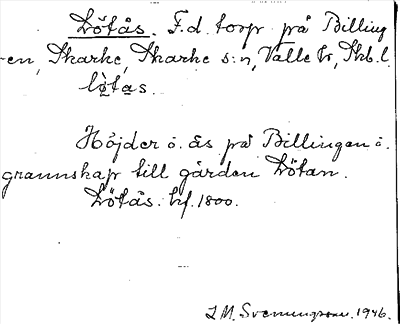 Lötås. F.d. torp på Billing
en, Skarke, Skarke s:n, Valle hd, Skb.l.
lø̀tas.
Höjder o. ås på Billingen i
grannskap till gården Lötan.
Lötås. hf. 1800.
J.M. Svenningsson. 1946.